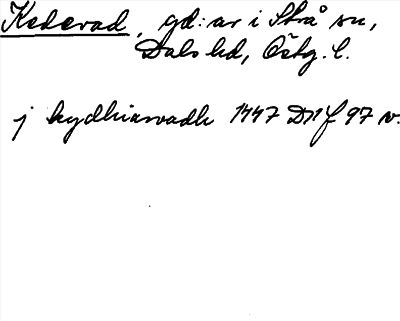 Kedevad, gd:ar i Strå sn,
Dals hd, Östg. l.
j kydhiavadh 1447 Dnf 97 v.